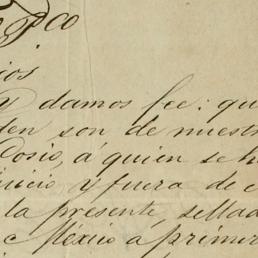 pco
ios
y damos fee: qu
den son de nuestr
Cosio, á quien se h
juicio y fuera de e
la presente, sellad
e México á primer